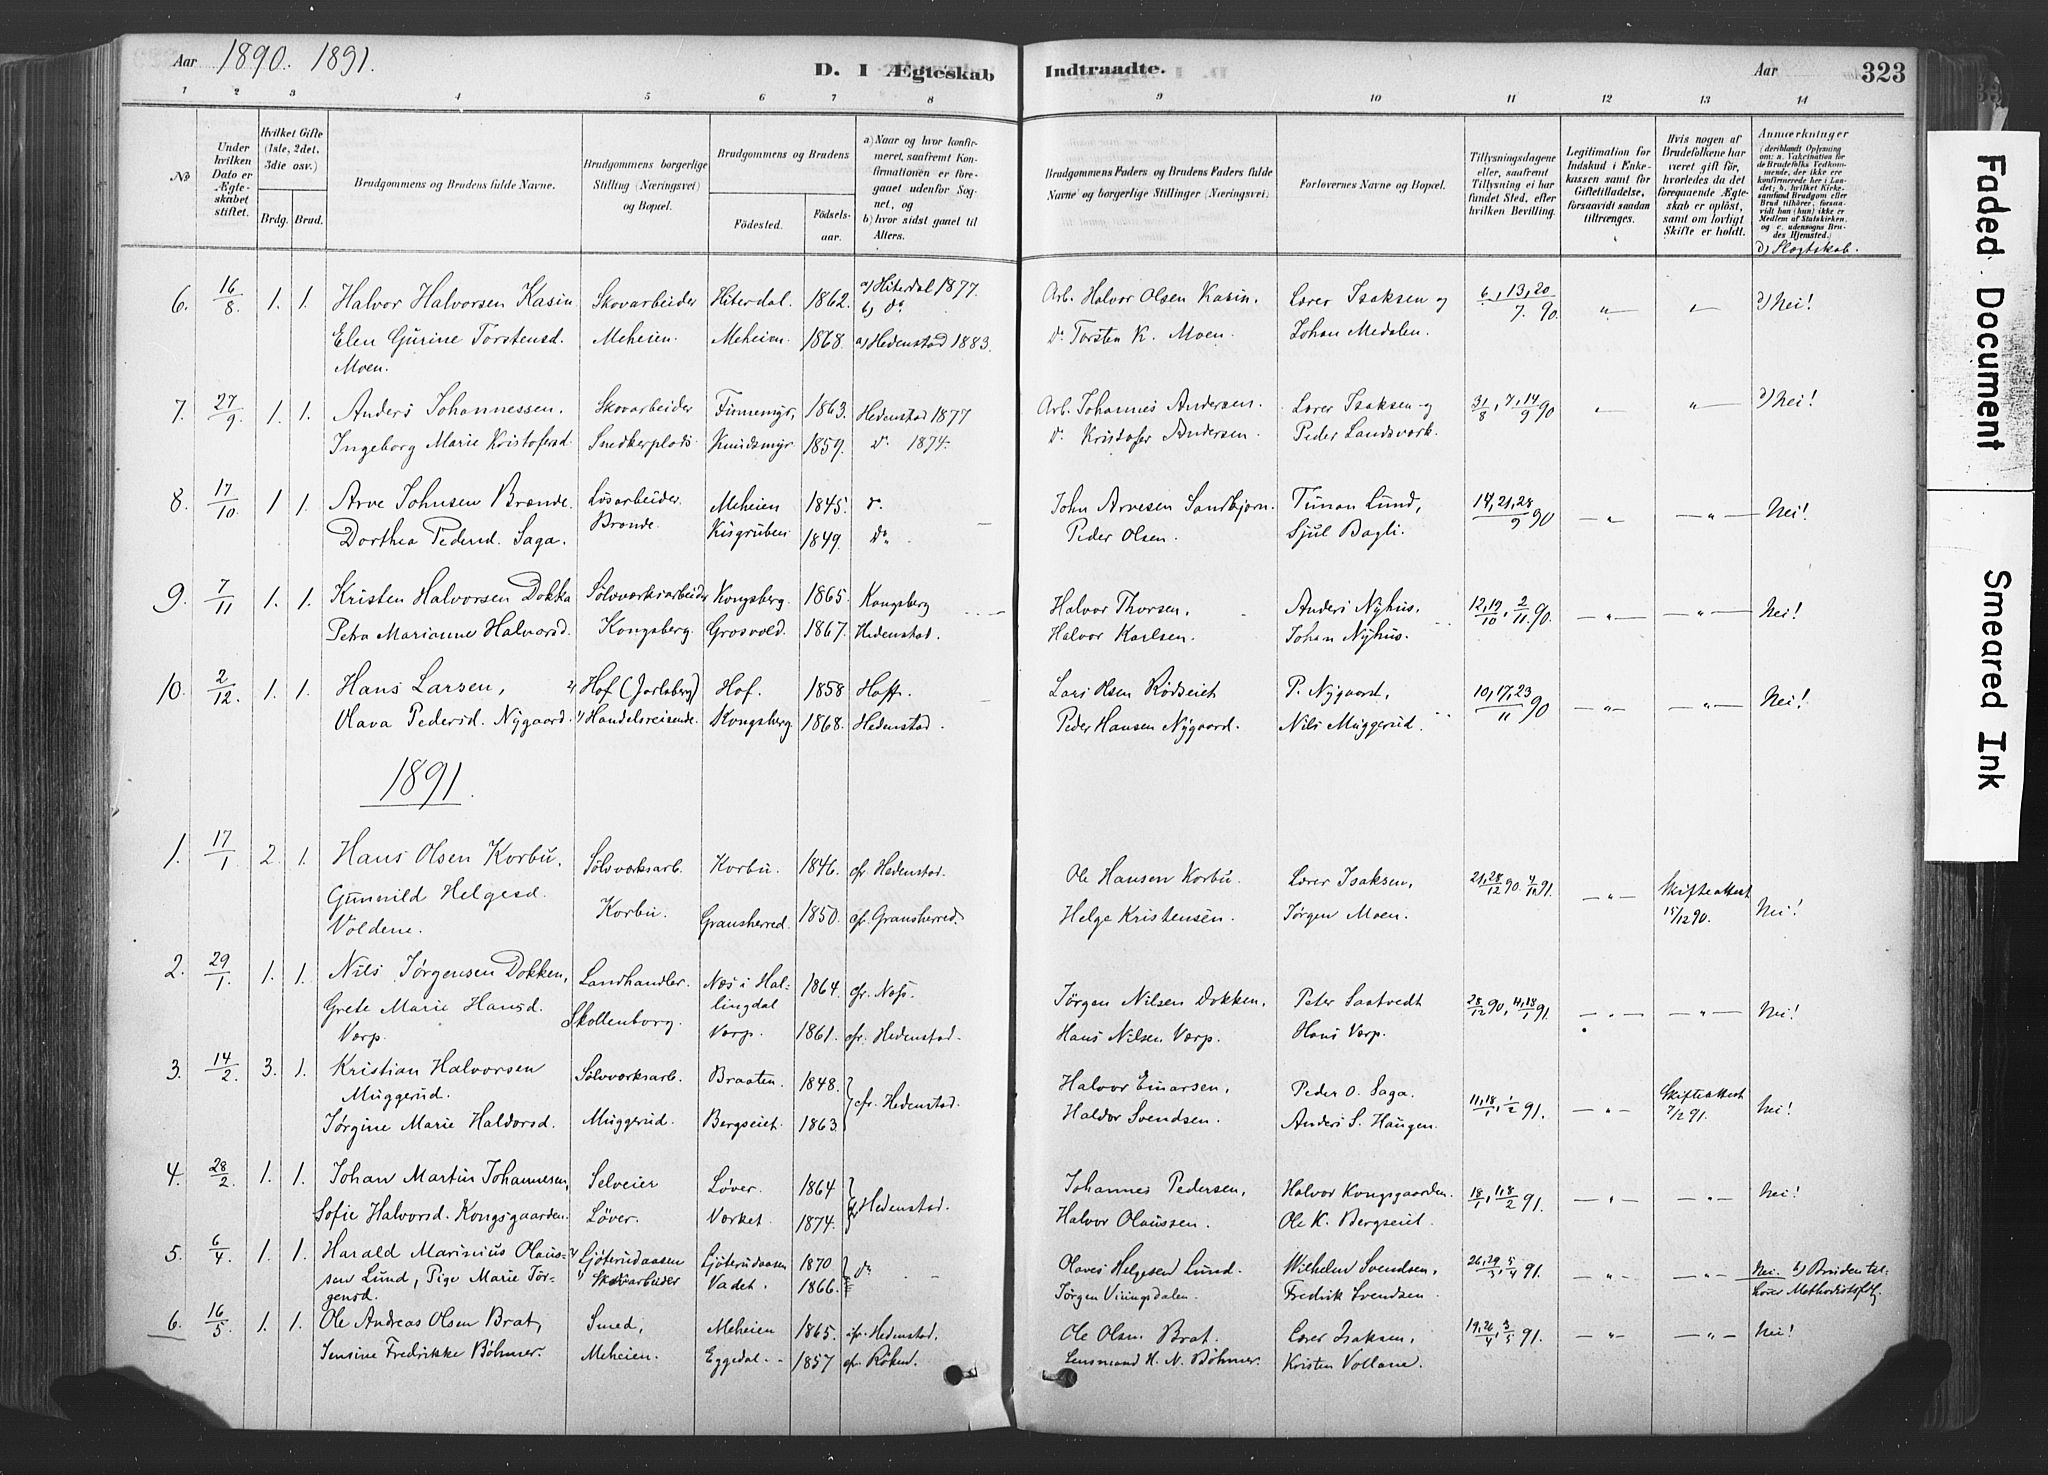 Aar 1890. 1891.
D. I Ægteskab Indtraadte.
Aar 323
1 2 3 4 5 6 7 8 9 10 11 12 13 14
No
Under hvilken Dato er Ægteskabet stiftet.
Hvilket Gifte (1ste, 2det, 3die osv.)
Brdg. Brud.
Brudgommens og Brudens fulde Navne.
Brudgommens borgerlige Stilling (Næringsvei) og Bopæl.
Brudgommens og Brudens
Fødested. Fødselsaar.
a) Naar og hvor konfirmeret, saafremt Konfirmationen er foregaaet udenfor Sognet, og
b) hvor sidst gaaet til Alters.
Brudgommens Faders og Brudens Faders fulde Navne og borgerlige Stillinger (Næringsvei).
Forlovernes Navne og Bopæl.
Tillysningsdagene eller, saafremt Tillysning ei har fundet Sted, efter hvilken Bevilling.
Legitimation for Indskud i Enkekassen samt for Giftetilladelse, forsaavidt saadan tiltrænges.
Hvis nogen af Brudefolkene har været gift før, hvorledes da det foregaaende Ægteskab er opløst, samt om lovligt Skifte er holdt.
Anmærkninger (deriblandt Oplysning om: a. Vakcination for de Brudefolks Vedkommende, der ikke ere konfirmerede her i Landet; b. hvilket Kirkesamfund Brudgom eller Brud tilhører, forsaavidt han (hun) ikke er Medlem af Statskirken, og c. udensogns Brudes Hjemsted.)
d) Slægtskab.
6. 16/8 1. 1. Halvor Halvorsen Kasin Skovarbeider Hiterdal. 1862. a) Hiterdal 1877. Arb. Halvor Olsen Kasin. Lærer Isaksen og 6, 13, 20/7 90. d) Nei!
Elen Gurine Torstensd. Meheien. Meheien. 1868. a) Hedenstad 1883. Do Torsten K. Moen. Johan Medalen.
Moen.
7. 27/9 1. 1. Anders Johannessen. Skovarbeider Finnemyr, 1863. Hedenstad 1877 Arb. Johannes Andersen. Lærer Isaksen og 31/8, 7, 14/9 90 d) Nei!
Ingeborg Marie Kristofersd. Snedkerplads Knudsmyr 1859. Do 1874. Do Kristofer Andersen. Peder Landsverk.
8. 17/10 1 1. Arve Johnsen Brænde. Løsarbeider. Meheien 1845. Do John Arvesen Sandbjørn. Tuman Lund, 14, 21, 28/9 90 Nei!
Dorthea Pedersd. Saga. Brænde. Kisgruben 1849. Do Peder Olsen. Sjul Bagli.
9. 7/11 1. 1. Kristen Halvorsen Dokka Sølvværksarbeider Kongsberg. 1865. Kongsberg Halvor Thorsen. Anders Nyhus. 12, 19/10, 2/11 90. Nei!
Petra Marianne Halvorsd. Kongsberg. Grosvold. 1867. Hedenstad. Halvor Karlsen. Johan Nyhus.
10. 2/12 1. 1. Hans Larsen, 2) Hof (Jarlsberg) Hof. 1858 Hoff. Lars Olsen Rødseiet P. Nygaard, 10, 17, 23/11 90 Nei!
Olava Pedersd. Nygaard. 1) Handelsreisende. Kongsberg 1868. Hedenstad. Peder Hansen Nygaard. Nils Muggerud.
1891.
1. 17/1 2. 1. Hans Olsen Korbu. Sølvværksarb. Korbu. 1846. cfr. Hedenstad. Ole Hansen Korbu. Lærer Isaksen, 21, 28/12 90. 4/1 91. Skifteattest
Gunnild Helgesd. Korbu. Gransherred. 1850. cfr. Gransherred. Helge Kristensen. Jørgen Moen. 15/12 90. Nei!
Voldene.
2. 29/1 1. 1. Nils Jørgensen Dokken, Landhandler. Næs i Hallingdal 1864. cfr. Næss. Jørgen Nilsen Dokken. Peter Saatvedt 28/12 90, 11, 18/1 91. Nei!
Grete Marie Hansd. Skollenborg. Værp. 1861. cfr. Hedenstad. Hans Nilsen Værp. Hans Værp.
Værp.
3. 14/2. 3. 1. Kristian Halvorsen Sølvværksarb. Braaten. 1848. cfr. Hedenstad. Halvor Einarsen, Peder O. Saga. 11, 18/1, 1/2 91. Skifteattest 7/2 91. Nei!
Muggerud.
Jørgine Marie Haldorsd. Muggerud. Bergseiet. 1863. Haldor Svendsen. Anders S. Haugen.
4. 28/2. 1. 1. Johan Martin Johannesen, Selveier Løver. 1864 cfr Hedenstad. Johannes Pedersen, Halvor Kongsgaarden. 18/1, 1, 8/2 91. Nei!
Sofie Halvorsd. Kongsgaarden. Løver. Værket. 1874. Halvor Olaussen. Ole K. Bergseiet.
5. 6/4. 1. 1. Harald Marinius Olaussen Lund, Pige Marie Jørgensd. 2) Ljøterudaasen Ljøterudaasen 1870 Do Olaves Helgesen Lund. Wilhelm Svendsen, 26, 29/3, 5/4 91. Nei. b) Bruden tilhører Methodistsftg.
1) Skovarbeider Vadet. 1866. Jørgen Viringsdalen. Fredrik Svendsen
6. 16/5. 1. 1. Ole Andreas Olsen Brat, Smed, Meheien 1865. cfr. Hedenstad. Ole Olsen Brat. Lærer Isaksen, 19, 26/4, 3/5 91. Nei!
Jensine Fredrikke Bøhmer. Meheien. Eggedal. 1857 cfr. Røken. Lensmand H. N. Bøhmer. Kristen Vollane.
Faded Document
Smeared Ink